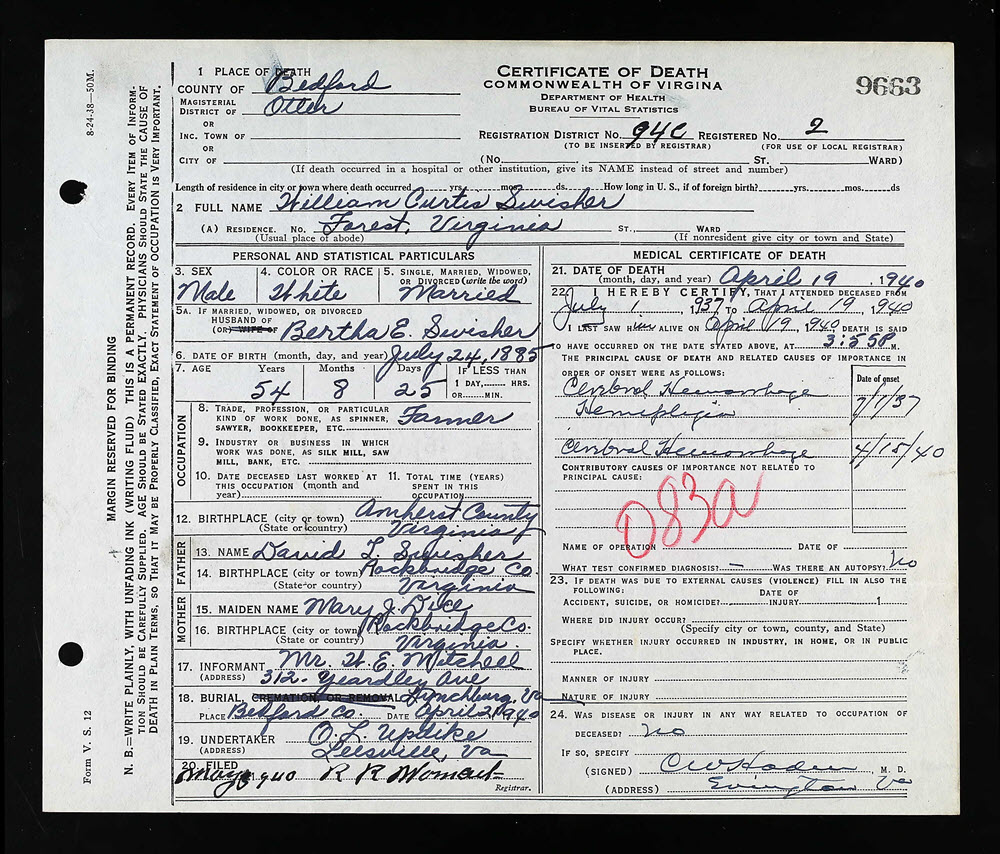 8-24-38—50M.
MARGIN RESERVED FOR BINDING
N. B.—WRITE PLAINLY, WITH UNFADING INK (WRITING FLUID) THIS IS A PERMANENT RECORD. EVERY ITEM OF INFORM-
TION SHOULD BE CAREFULLY SUPPLIED. AGE SHOULD BE STATED EXACTLY. PHYSICIANS SHOULD STATE THE CAUSE OF
DEATH IN PLAIN TERMS, SO THAT IT MAY BE PROPERLY CLASSIFIED. EXACT STATEMENT OF OCCUPATION IS VERY IMPORTANT.
Form V. S. 12
CERTIFICATE OF DEATH
COMMONWEALTH OF VIRGINA
DEPARTMENT OF HEALTH
BUREAU OF VITAL STATISTICS
9663
1 PLACE OF DEATH
COUNTY OF Bedford
MAGISTERIAL
DISTRICT OF Otter
OR
INC. TOWN OF
OR
CITY OF
REGISTRATION DISTRICT NO. 94C REGISTERED NO. 2
(TO BE INSERTED BY REGISTRAR) (FOR USE OF LOCAL REGISTRAR)
(No. ST. WARD)
(If death occurred in a hospital or other institution, give its NAME instead of street and number)
Length of residence in city or town where death occurred yrs. mos. ds. How long in U. S., if of foreign birth? yrs. mos. ds
2 FULL NAME William Curtis Swisher
(A) RESIDENCE. No. Forest, Virginia ST., WARD
(Usual place of abode) (If nonresident give city or town and State)
PERSONAL AND STATISTICAL PARTICULARS
3. SEX Male
4. COLOR OR RACE White
5. SINGLE, MARRIED, WIDOWED, OR DIVORCED (write the word) Married
5A. IF MARRIED, WIDOWED, OR DIVORCED
HUSBAND OF
(OR) WIFE OF Bertha E. Swisher
6. DATE OF BIRTH (month, day, and year) July 24, 1885
7. AGE Years Months Days IF LESS THAN
54 8 25 1 DAY, HRS.
OR MIN.
OCCUPATION
8. TRADE, PROFESSION, OR PARTICULAR
KIND OF WORK DONE, AS SPINNER,
SAWYER, BOOKKEEPER, ETC. Farmer
9. INDUSTRY OR BUSINESS IN WHICH
WORK WAS DONE, AS SILK MILL, SAW
MILL, BANK, ETC.
10. DATE DECEASED LAST WORKED AT
THIS OCCUPATION (month and
year)
11. TOTAL TIME (YEARS)
SPENT IN THIS
OCCUPATION
12. BIRTHPLACE (city or town) Amherst County
(State or country) Virginia
FATHER
13. NAME David L. Swisher
14. BIRTHPLACE (city or town) Rockbridge Co.
(State or country) Virginia
MOTHER
15. MAIDEN NAME Mary J. Dice
16. BIRTHPLACE (city or town) Rockbridge Co.
(State or country) Virginia.
17. INFORMANT Mr. W. E. Mitchell
(ADDRESS) 312 Yeardley Ave
Lynchburg, Va
18. BURIAL, CREMATION, OR REMOVAL
PLACE Bedford Co. DATE April 21 1940
19. UNDERTAKER O. L. Updike
(ADDRESS) Leesville, Va
20. FILED May 6 1940 R R Womack
Registrar.
MEDICAL CERTIFICATE OF DEATH
21. DATE OF DEATH
(month, day, and year) April 19, 1940
22. I HEREBY CERTIFY, THAT I ATTENDED DECEASED FROM
July 1, 1937 TO April 19, 1940
I LAST SAW HIM ALIVE ON April 19, 1940 DEATH IS SAID
TO HAVE OCCURRED ON THE DATE STATED ABOVE, AT 3:55 P M.
THE PRINCIPAL CAUSE OF DEATH AND RELATED CAUSES OF IMPORTANCE IN
ORDER OF ONSET WERE AS FOLLOWS: Date of onset
Cerebral Hemorrhage
Hemiplegia 7/1/37
Cerebral Hemorrhage 4/18/40
CONTRIBUTORY CAUSES OF IMPORTANCE NOT RELATED TO
PRINCIPAL CAUSE:
083a
NAME OF OPERATION DATE OF
WHAT TEST CONFIRMED DIAGNOSIS? — WAS THERE AN AUTOPSY? No
23. IF DEATH WAS DUE TO EXTERNAL CAUSES (VIOLENCE) FILL IN ALSO THE
FOLLOWING:
ACCIDENT, SUICIDE, OR HOMICIDE? DATE OF INJURY 1
WHERE DID INJURY OCCUR?
(Specify city or town, county, and State)
SPECIFY WHETHER INJURY OCCURRED IN INDUSTRY, IN HOME, OR IN PUBLIC
PLACE.
MANNER OF INJURY
NATURE OF INJURY
24. WAS DISEASE OR INJURY IN ANY WAY RELATED TO OCCUPATION OF
DECEASED? No
IF SO, SPECIFY
(SIGNED) M. D.
(ADDRESS) Evington Va